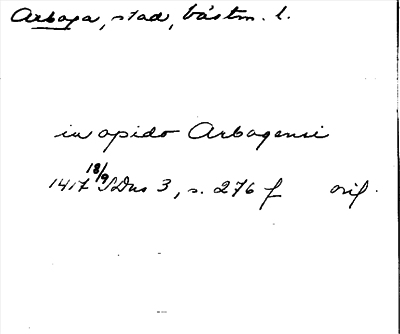 Arboga, stad, västm. l.
in opido Arbogensi
1417 18/9 SDns 3, s. 276 f orig.